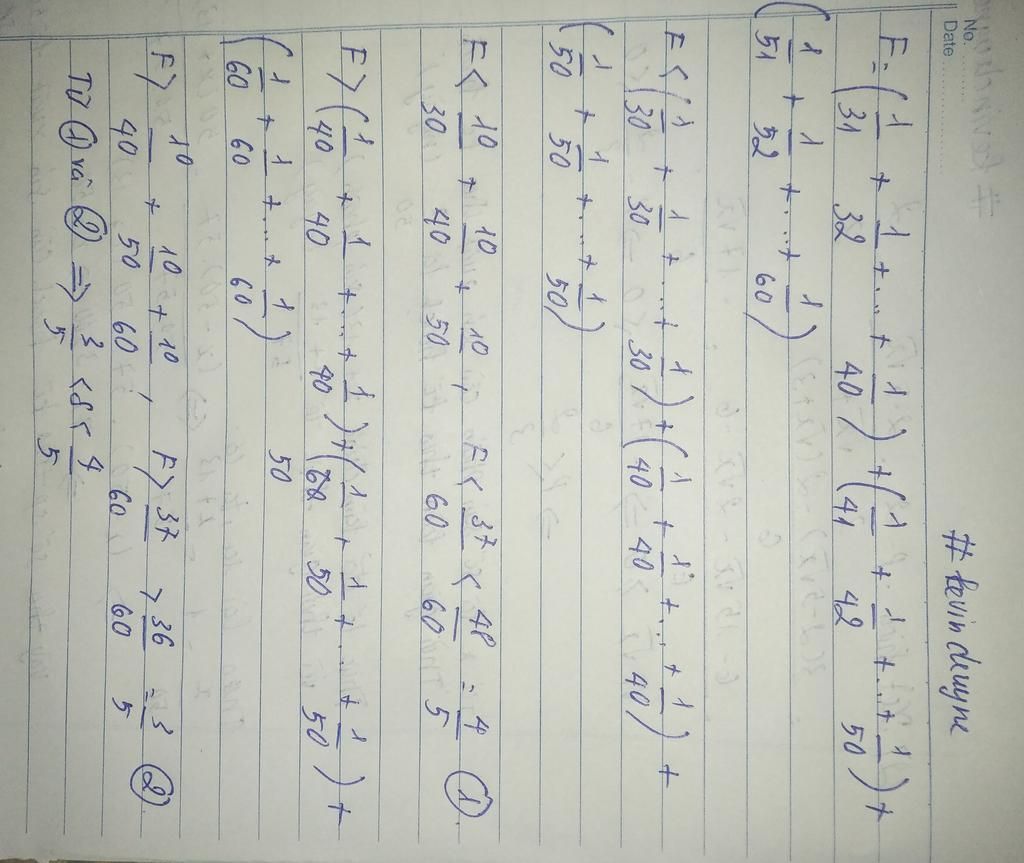 No.
Date
# kevin dwyne
F = (1/31 + 1/32 + ... + 1/40) + (1/41 + 1/42 + ... + 1/50) +
(1/51 + 1/52 + ... + 1/60)
F < (1/30 + 1/30 + ... + 1/30) + (1/40 + 1/40 + ... + 1/40) +
(1/50 + 1/50 + ... + 1/50)
F < 10/30 + 10/40 + 10/50, F < 37/60 < 48/60 = 4/5 (1)
F > (1/40 + 1/40 + ... + 1/40) + (1/50 + 1/50 + ... + 1/50) +
(1/60 + 1/60 + ... + 1/60)
F > 10/40 + 10/50 + 10/60, F > 37/60 > 36/60 = 3/5 (2)
Từ (1) và (2) => 3/5 < S < 4/5